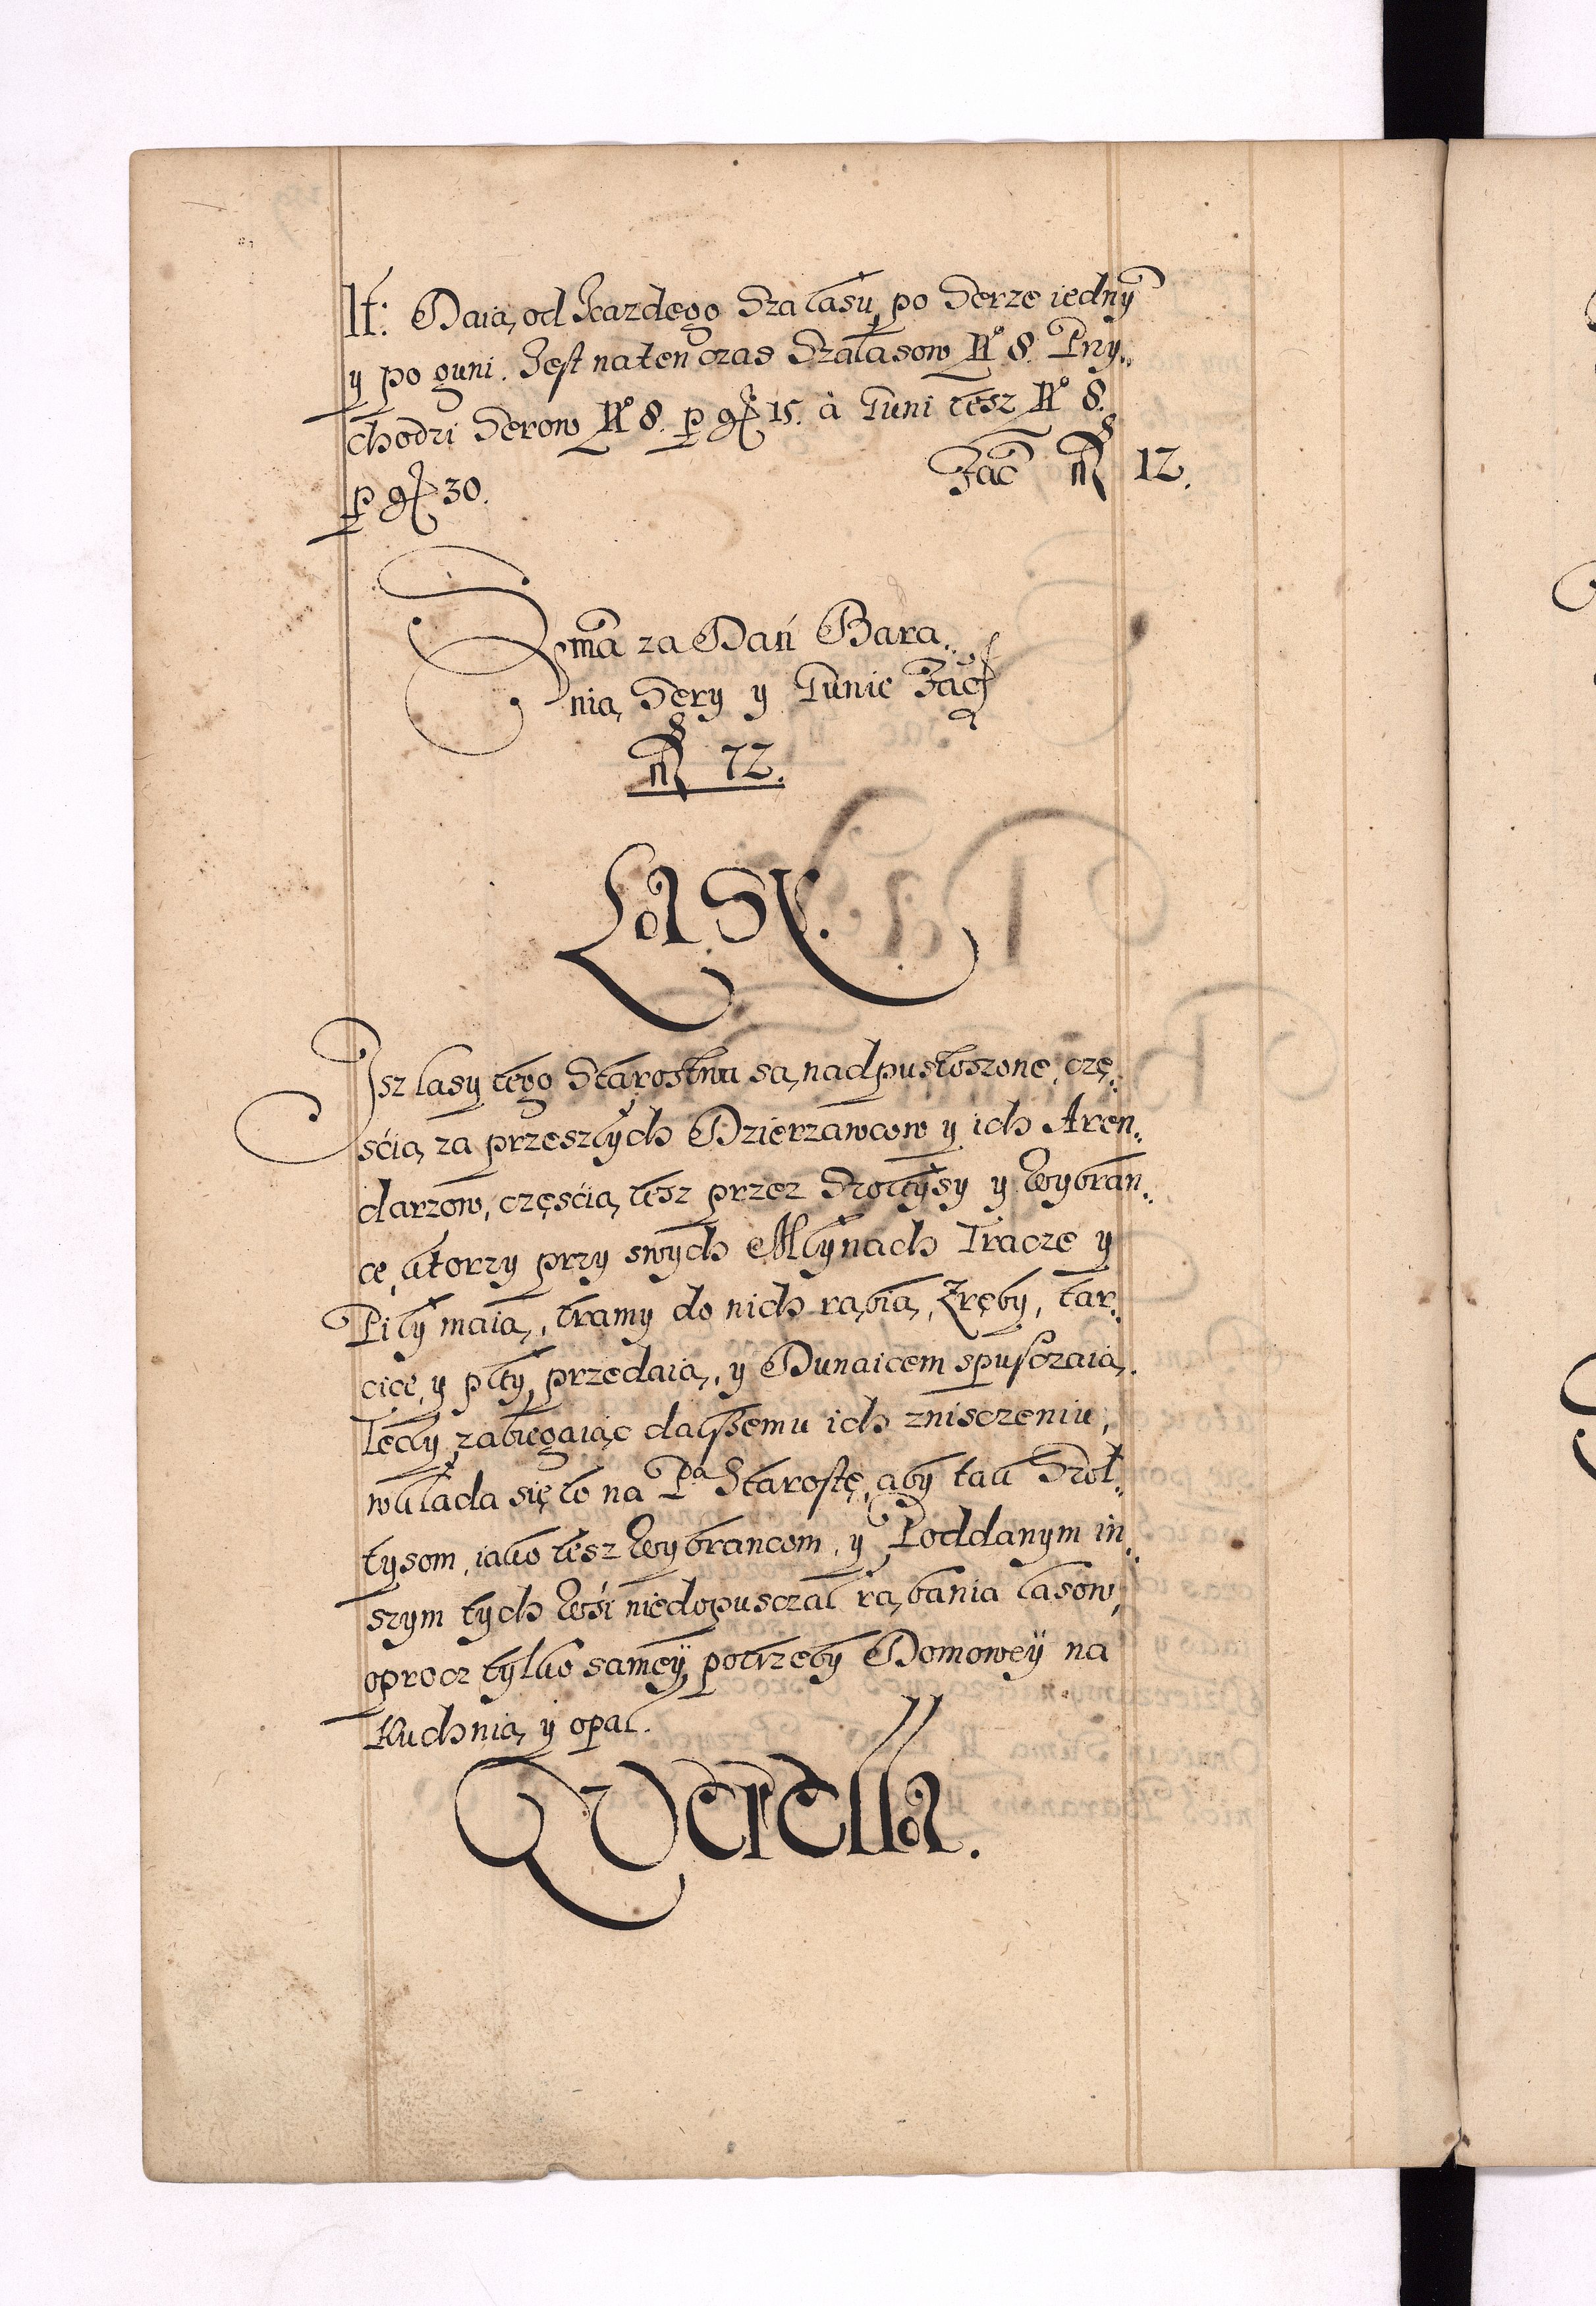 It: Daią od każdego Szałasu po Serze iedny
y po guni. Jest natenczas Szałasow Nº 8. Przy
chodzi Serow Nº 8. p gr 15. à Guni tesz Nº 8.
p gr 30. Fac fl 12.
Sum̃a za Dań Bara
nią Sery y Gunie Fac
fl 72.
LASY.
Isz lasy tego Starostwa są nadpustoszone, czę
scią za przeszłych Dzierzawcow y ich Aren
darzow, częscią tesz przez Szołtysy y Wybran
ce, ktorzy przy swych Młynach Tracze y
Piły maią, tramy do nich rąbią, Zręby, tar
cice, y płty przedaią, y Dunaicem spusczaią.
Tedy zabiegaiąc dalszemu ich znisczeniu,
wkłada się to na Pa Starostę, aby tak Szoł
tysom, iako tesz Wybrancom, y Poddanym in
szym tych Wśi niedopusczał rąbania lasow,
oprocz tylko sameÿ potrzeby Domoweÿ na
Kuchnią y opał.
Qverella.